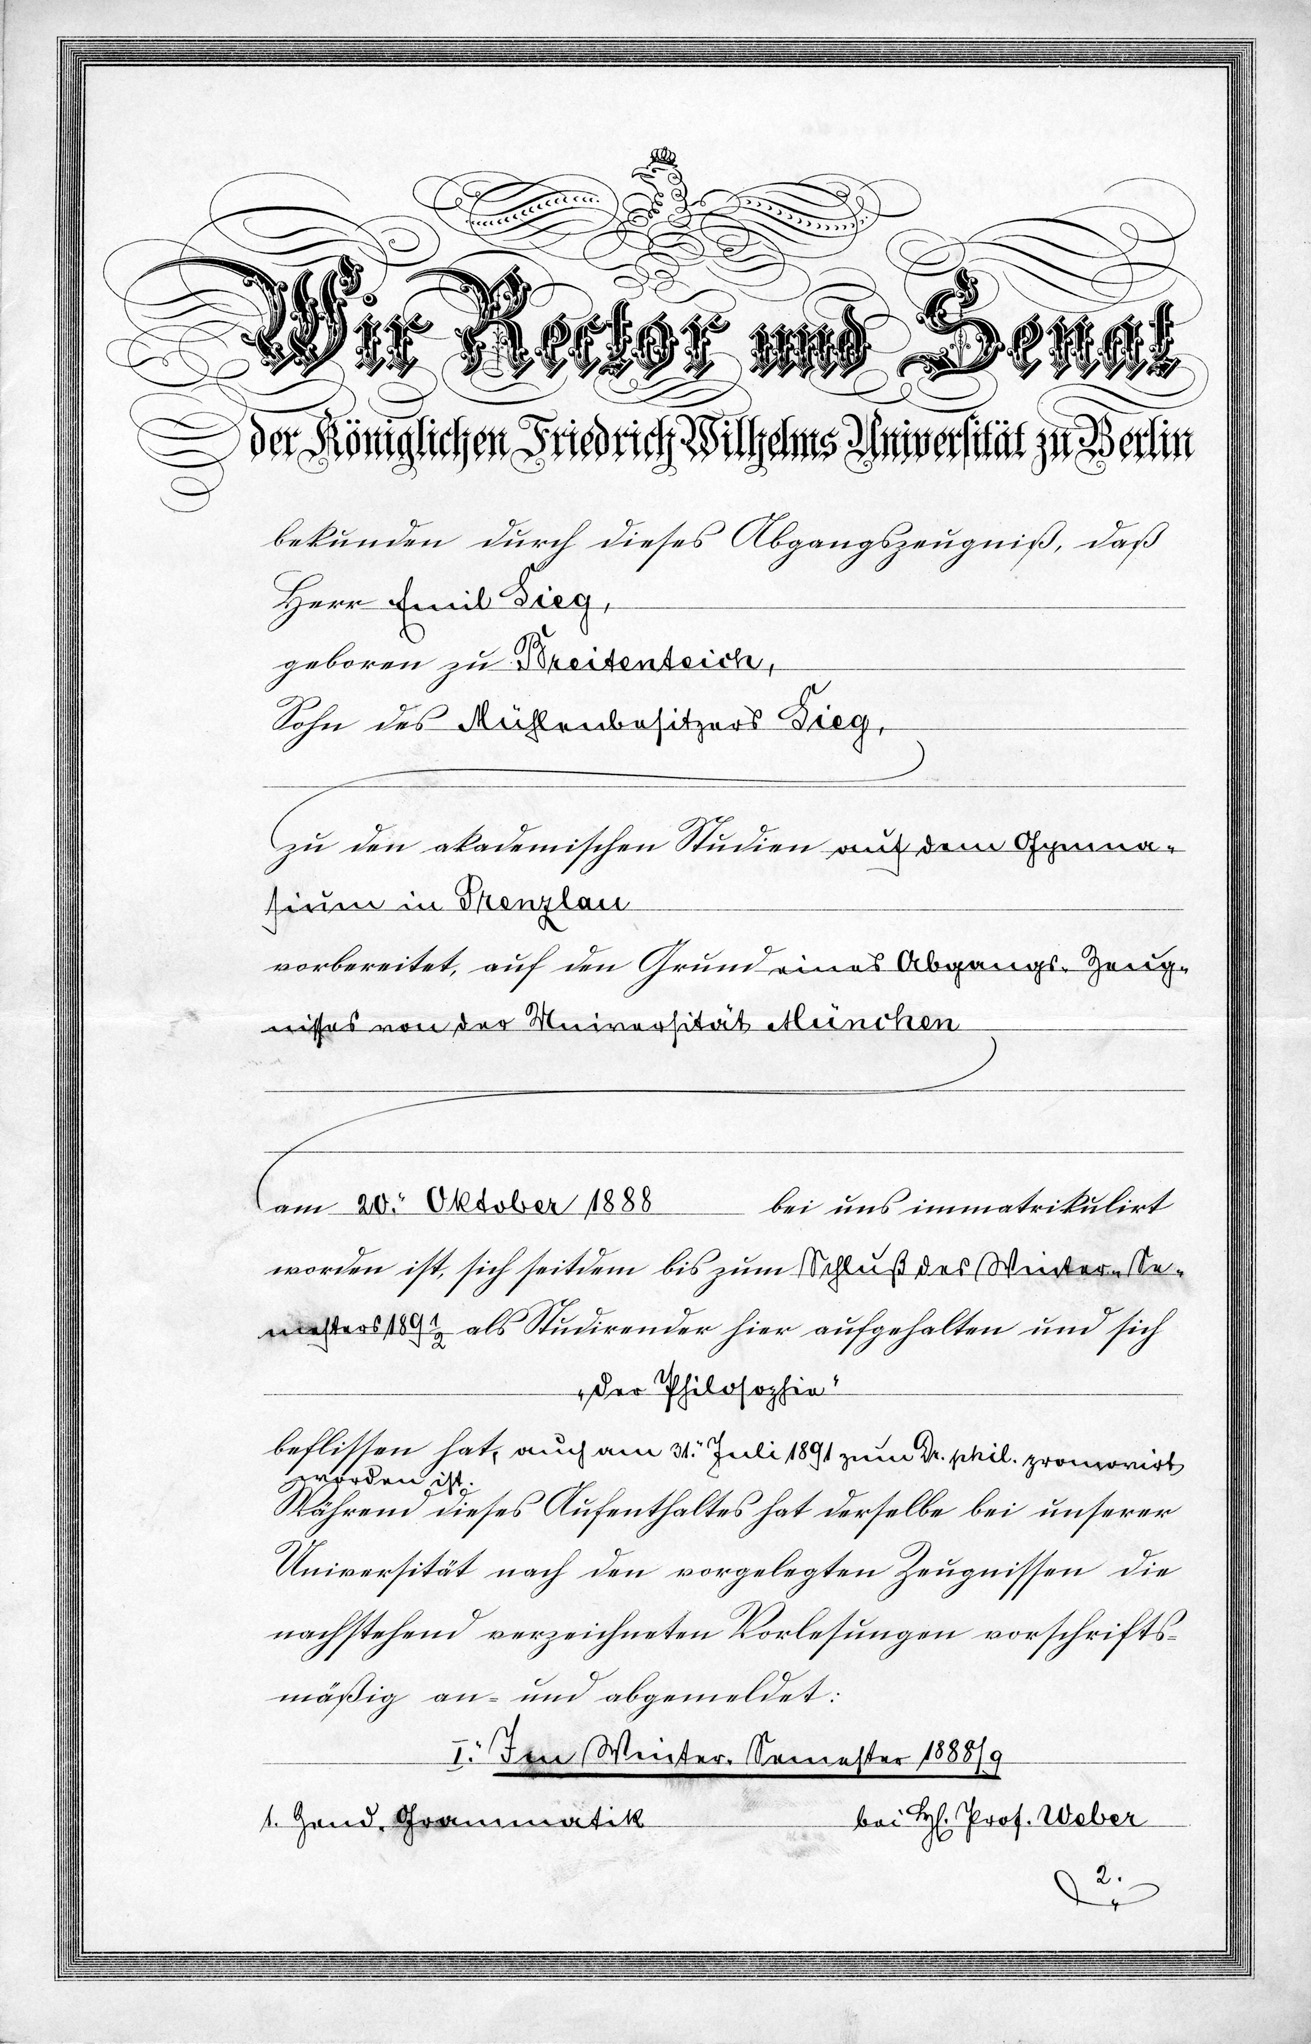 Wir Rector und Senat
der Königlichen Friedrich Wilhelms Universität zu Berlin
bekunden durch dieses Abgangszeugniß, daß
Herr Emil Sieg,
geboren zu Breitenteich,
Sohn des Mühlenbesitzers Sieg,
zu den akademischen Studien auf dem Gymna-
sium in Prenzlau
vorbereitet, auf den Grund eines Abgangs-Zeug-
nisses von der Universität München
am 20. Oktober 1888 bei uns immatrikulirt
worden ist, sich seitdem bis zum Schluß des Winter-Se-
mesters 189 1/2 als Studirender hier aufgehalten und sich
„der Philosophie“
beflissen hat, auch am 31. Juli 1891 zum Dr. phil. promovirt
worden ist.
Während dieses Aufenthaltes hat derselbe bei unserer
Universität nach den vorgelegten Zeugnissen die
nachstehend verzeichneten Vorlesungen vorschrifts-
mäßig an- und abgemeldet:
I. Im Winter-Semester 1888/9
1. Zend-Grammatik bei H. Prof. Weber
2.